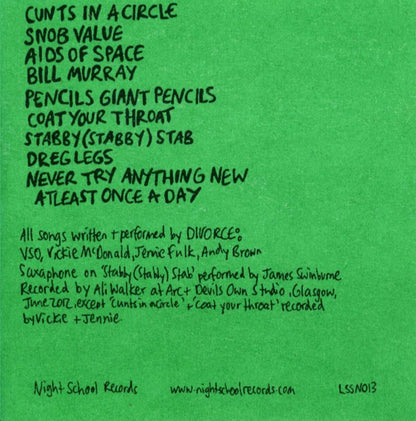 CUNTS IN A CIRCLE
SNOB VALUE
AIDS OF SPACE
BILL MURRAY
PENCILS GIANT PENCILS
COAT YOUR THROAT
STABBY (STABBY) STAB
DREG LEGS
NEVER TRY ANYTHING NEW
ATLEAST ONCE A DAY
All songs written + performed by DIVORCE:
VSO, Vickie McDonald, Jennie Fulk, Andy Brown
Saxophone on 'Stabby (Stabby) Stab' performed by James Swinburne
Recorded by Ali Walker at Arc + Devils Own Studio, Glasgow,
June 2012, except 'cunts in a circle' + 'coat your throat' recorded
by Vickie + Jennie.
Night School Records www.nightschoolrecords.com LSSN013